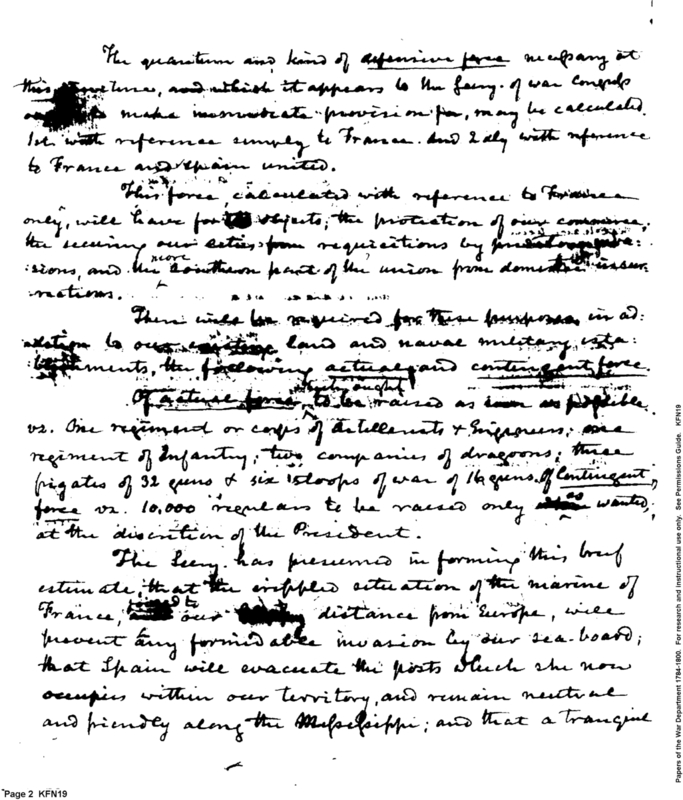 The quantum and kind of defensive force necessary at
this juncture, and which it appears to the Secry. of war Congress
to make immediate provision for, may be calculated.
1st. with reference simply to France. And 2dly with reference
to France and Spain united.
This force, calculated with reference to France
only, will have for objects; the protection of our commerce,
the securing our cities from requisitions by
sions, and the more Southern part of the union from domestic insur-
rections.
There will be required for these purposes, in ad:
dition to our land and naval military esta:
blishments, the following actual and contingent force.
Of actual force, to be raised as soon as possible
vz. One regiment or corps of Artillerists & Engineers; one
regiment of Infantry; two companies of dragoons; three
frigates of 32 guns & six sloops of war of 16 guns. Of Contingent
force vz. 10,000 regulars to be raised only as wanted,
at the discretion of the President.
The Secry. has presumed in forming this brief
estimate, that the crippled situation of the marine of
France, our distance from Europe, will
prevent any formidable invasion by our sea-board;
that Spain will evacuate the posts which she now
occupies within our territory, and remain neutral
and friendly along the Mississippi; and that a tranquil
Page 2 KFN19
Papers of the War Department 1784-1800. For research and instructional use only. See Permissions Guide. KFN19